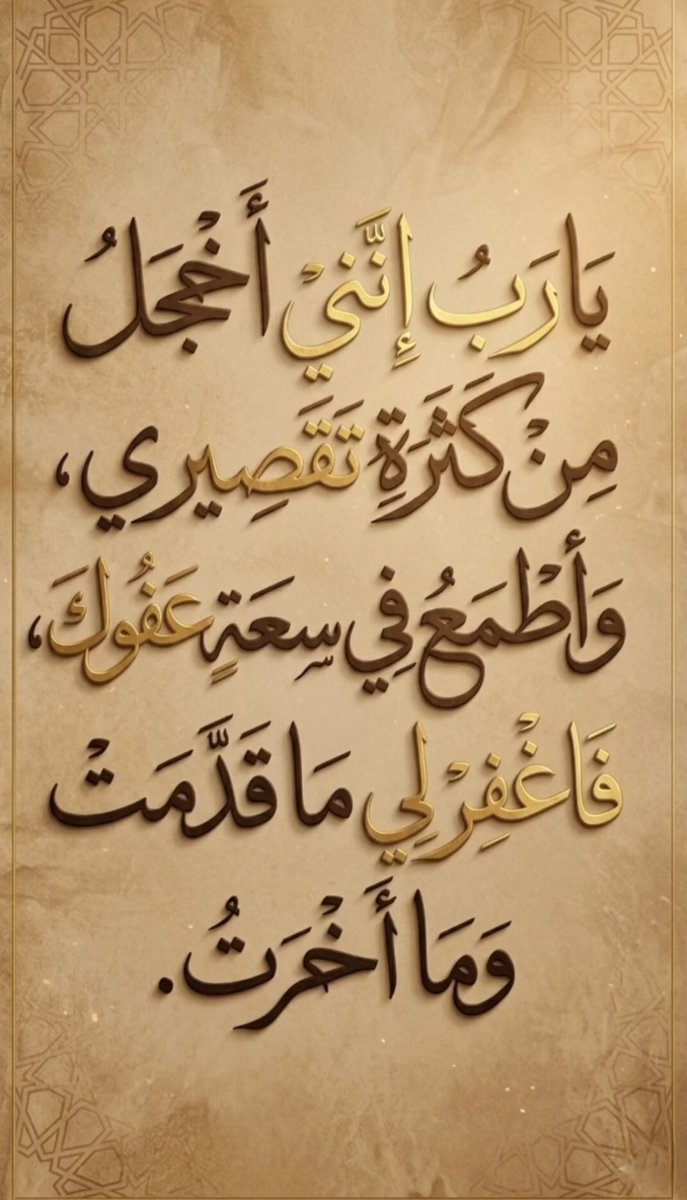 يَا رَبُ إِنَّنيْ أَخْجَلُ
مِنْ كَثَرَةِ تَقَصِيري،
وَأَطْمَعُ فِي سِعَةٍ عَفُوكَ،
فَاغْفِرْ لِي مَا قَدَّمَتْ
وَمَا أَخْرَتُ.